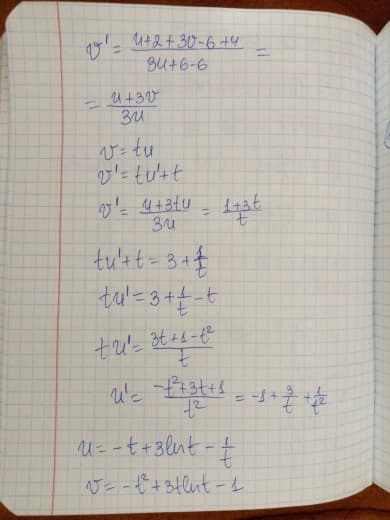 v' = (u+2+3v-6+4)/(3u+6-6) =
= (u+3v)/(3u)
v = tu
v' = tu'+t
v' = (u+3tu)/(3u) = (1+3t)/t
tu'+t = 3+1/t
tu' = 3+1/t-t
tu' = (3t+1-t²)/t
u' = (-t²+3t+1)/t² = -1+3/t+1/t²
u = -t+3lnt-1/t
v = -t²+3tlnt-1